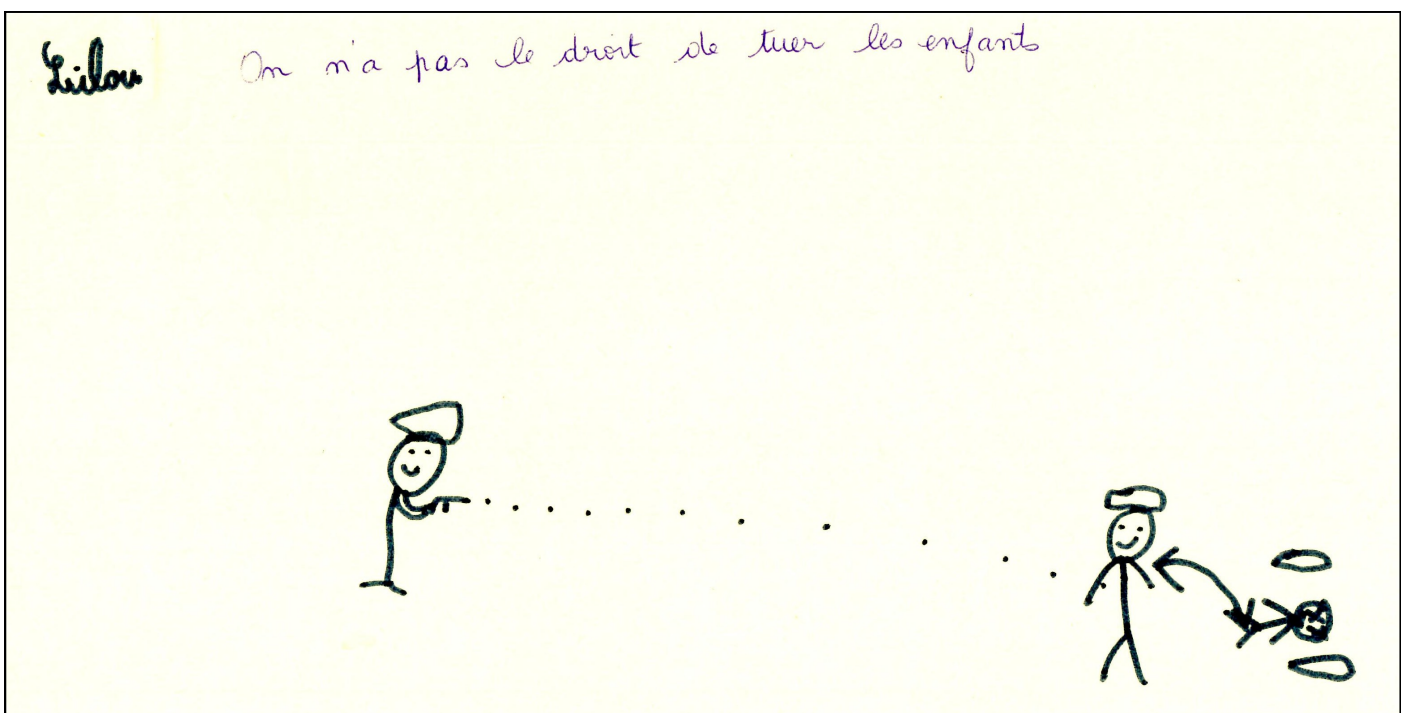 Lilou On n'a pas le droit de tuer les enfants